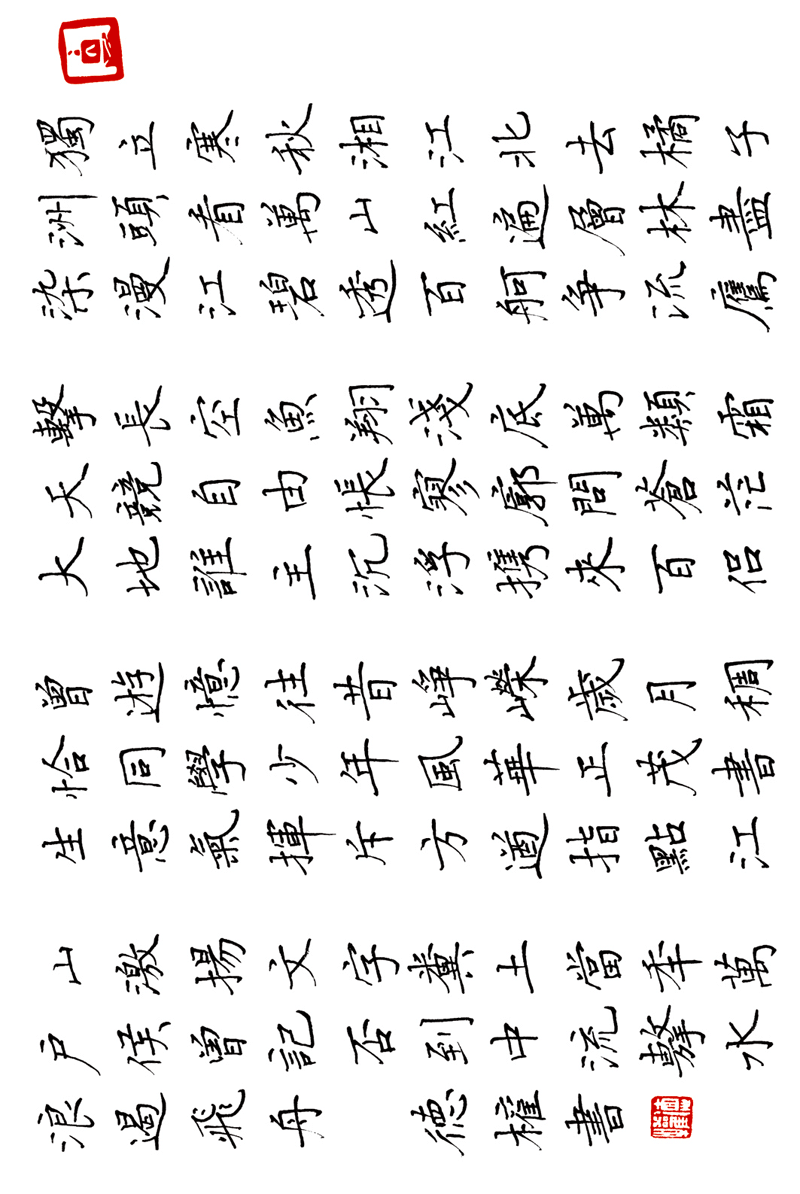 獨立寒秋湘江北去橘子
洲頭看萬山紅遍層林盡
染漫江碧透百舸爭流鷹
擊長空魚翔淺底萬類霜
天競自由悵寥廓問蒼茫
大地誰主沉浮携來百侶
曾遊憶往昔崢嶸歲月稠
恰同學少年風華正茂書
生意氣揮斥方遒指點江
山激揚文字糞土當秊萬
戶侯曾記否到中流擊水
浪遏飛舟 德權書